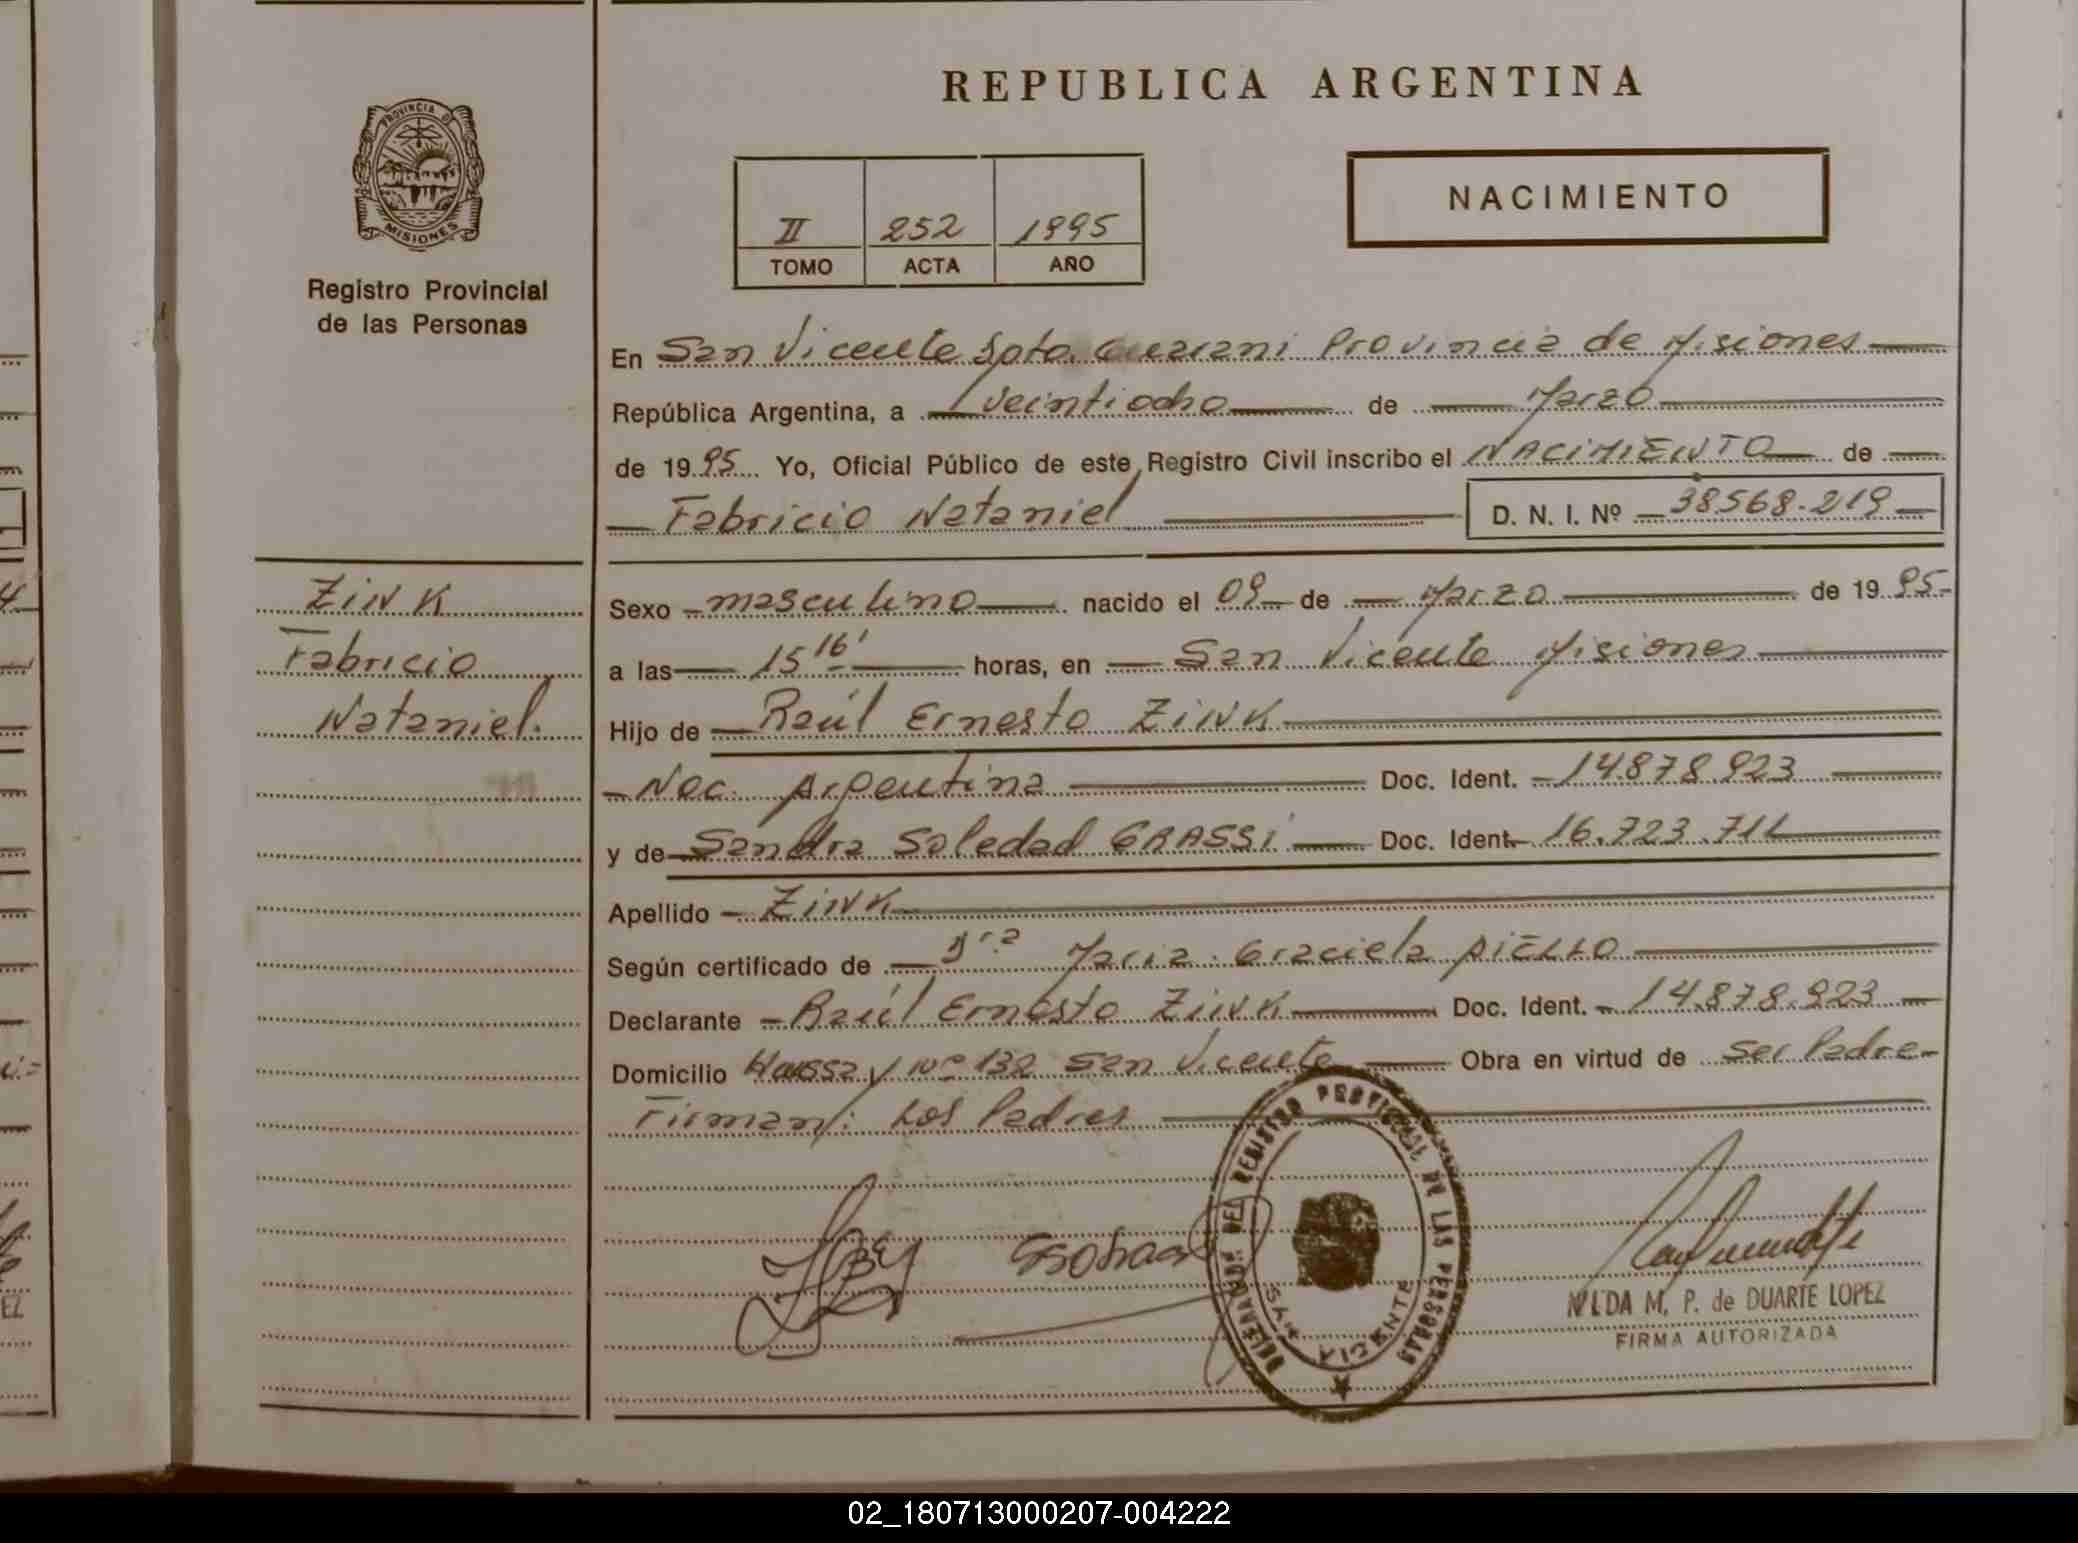 REPUBLICA ARGENTINA
PROVINCIA D
MISIONES
Registro Provincial
de las Personas
II 252 1995
TOMO ACTA AÑO
NACIMIENTO
En San Vicente Dpto. Guarani Provincia de Misiones
República Argentina, a veintiocho de Marzo
de 1995 Yo, Oficial Público de este Registro Civil inscribo el NACIMIENTO de
Fabricio Nataniel D. N. I. Nº 38.568.219
ZINK
Fabricio
Nataniel.
Sexo masculino nacido el 09 de Marzo de 1995.
a las 15 16' horas, en San Vicente Misiones
Hijo de Raúl Ernesto ZINK
Nac. Argentina Doc. Ident. 14.878.923
y de Sandra Soledad GRASSI Doc. Ident. 16.723.711
Apellido ZINK
Según certificado de Dra Maria Graciela
Declarante Raúl Ernesto ZINK Doc. Ident. 14.878.923
Domicilio Nº 132 San Vicente Obra en virtud de ser Padre
Firman: Los Padres
DELEGADA DEL REGISTRO PROVINCIAL DE LAS PERSONAS
SAN VICENTE
NILDA M. P. de DUARTE LOPEZ
FIRMA AUTORIZADA
EZ
02_180713000207-004222